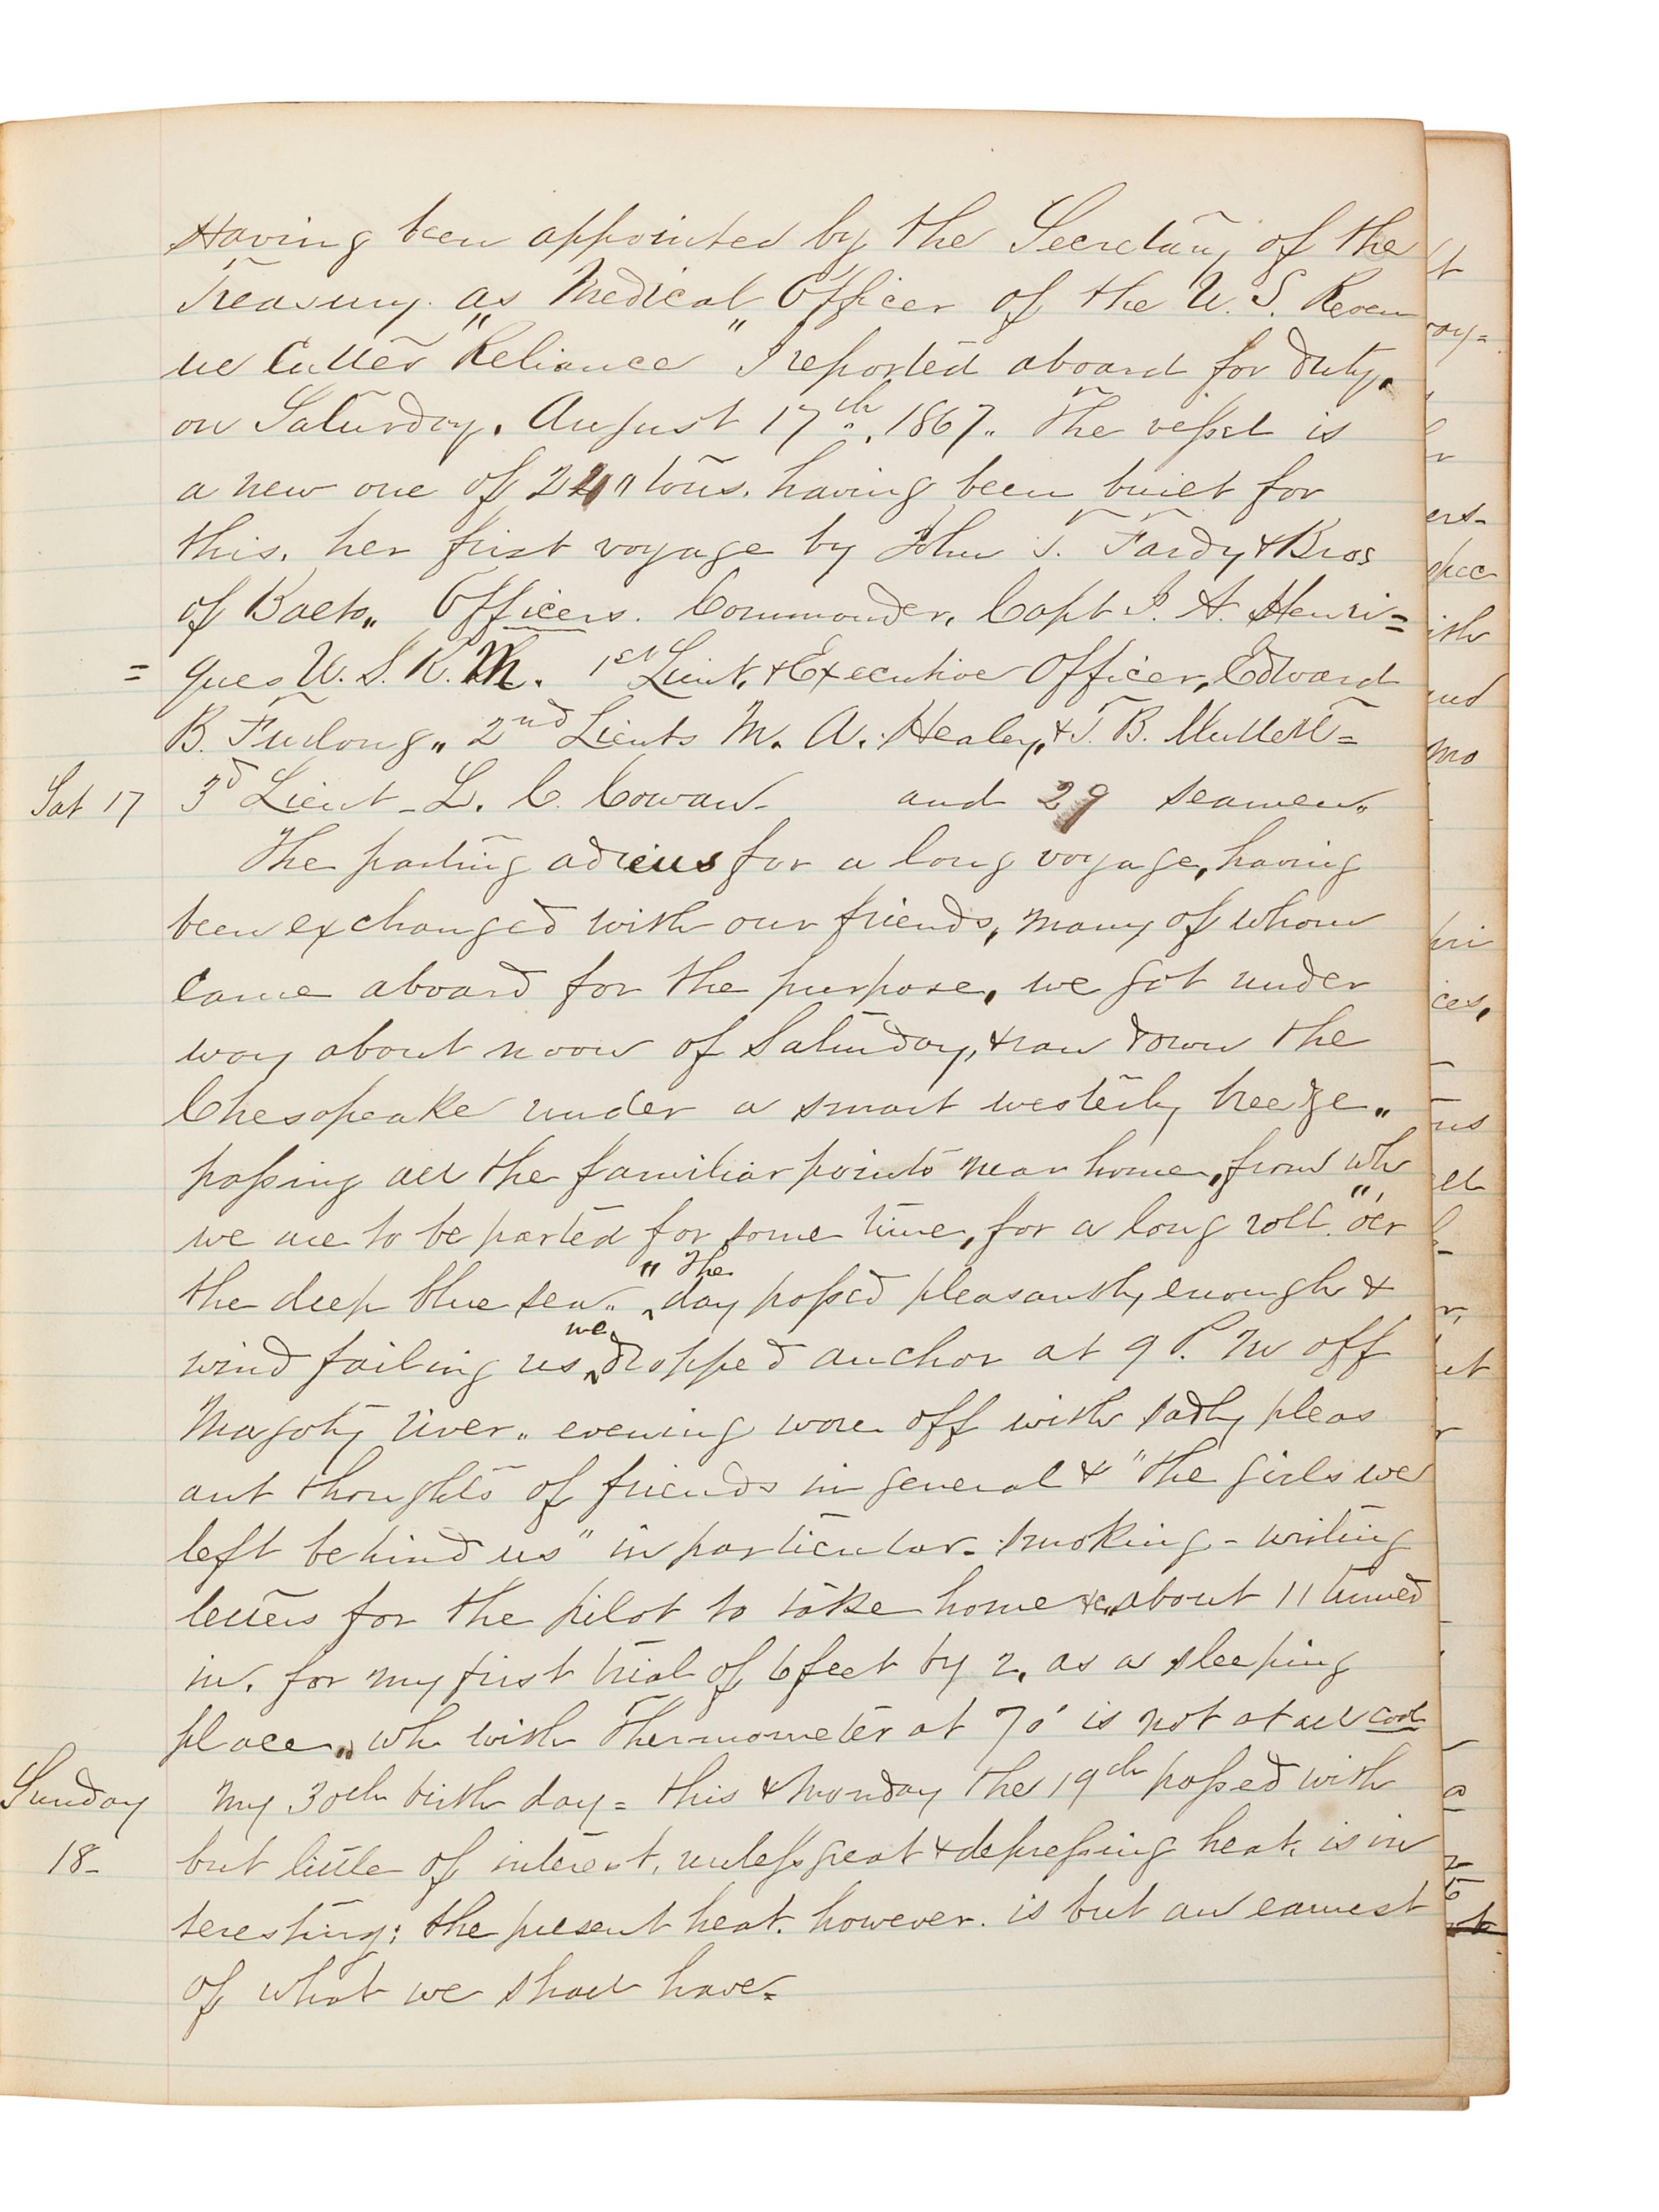 Having been appointed by the Secretary of the
Treasury. as Medical Officer of the U. S. Reven
ue Cutter "Reliance" I reported aboard for duty.
on Saturday. August 17th. 1867. The vessel is
a new one of tons. having been built for
this. her first voyage by John T. Fardy & Bros
of Balto,, Officers. Commander, Capt J. A. Henri=
=ques U. S. R. M. 1st Lieut. & Executive Officer, Edward
B. Furlong,, 2nd Lieuts M. A. Healey, & T. B. Mullett=
Sat 17 3d Lieut - L. C. Cowan - and 29 seamen,,
The parting adieus for a long voyage, having
been exchanged with our friends, many of whom
came aboard for the purpose, we got under
way about noon of Saturday, & ran down the
Chesapeake under a smart westerly breeze,,
passing all the familiar points near home, from wh
we are to be parted for some time, for a long roll "o'er
the deep blue sea" The day passed pleasantly enough &
wind failing us, we dropped anchor at 9 P. M off
Magoty river,, evening wore off with sadly pleas
ant thoughts of friends in general & "the girls we
left behind us" in particular - smoking - writing
letters for the pilot to take home &c,, about 11 turned
in. for my first trial of 6 feet by 2. as a sleeping
place,, wh with Thermometer at 70° is not at all cool
Sunday My 30th birth day = this & Monday the 19th passed with
18- but little of interest, unless great & depressing heat. is in
teresting; the present heat. however. is but an earnest
of what we shall have=